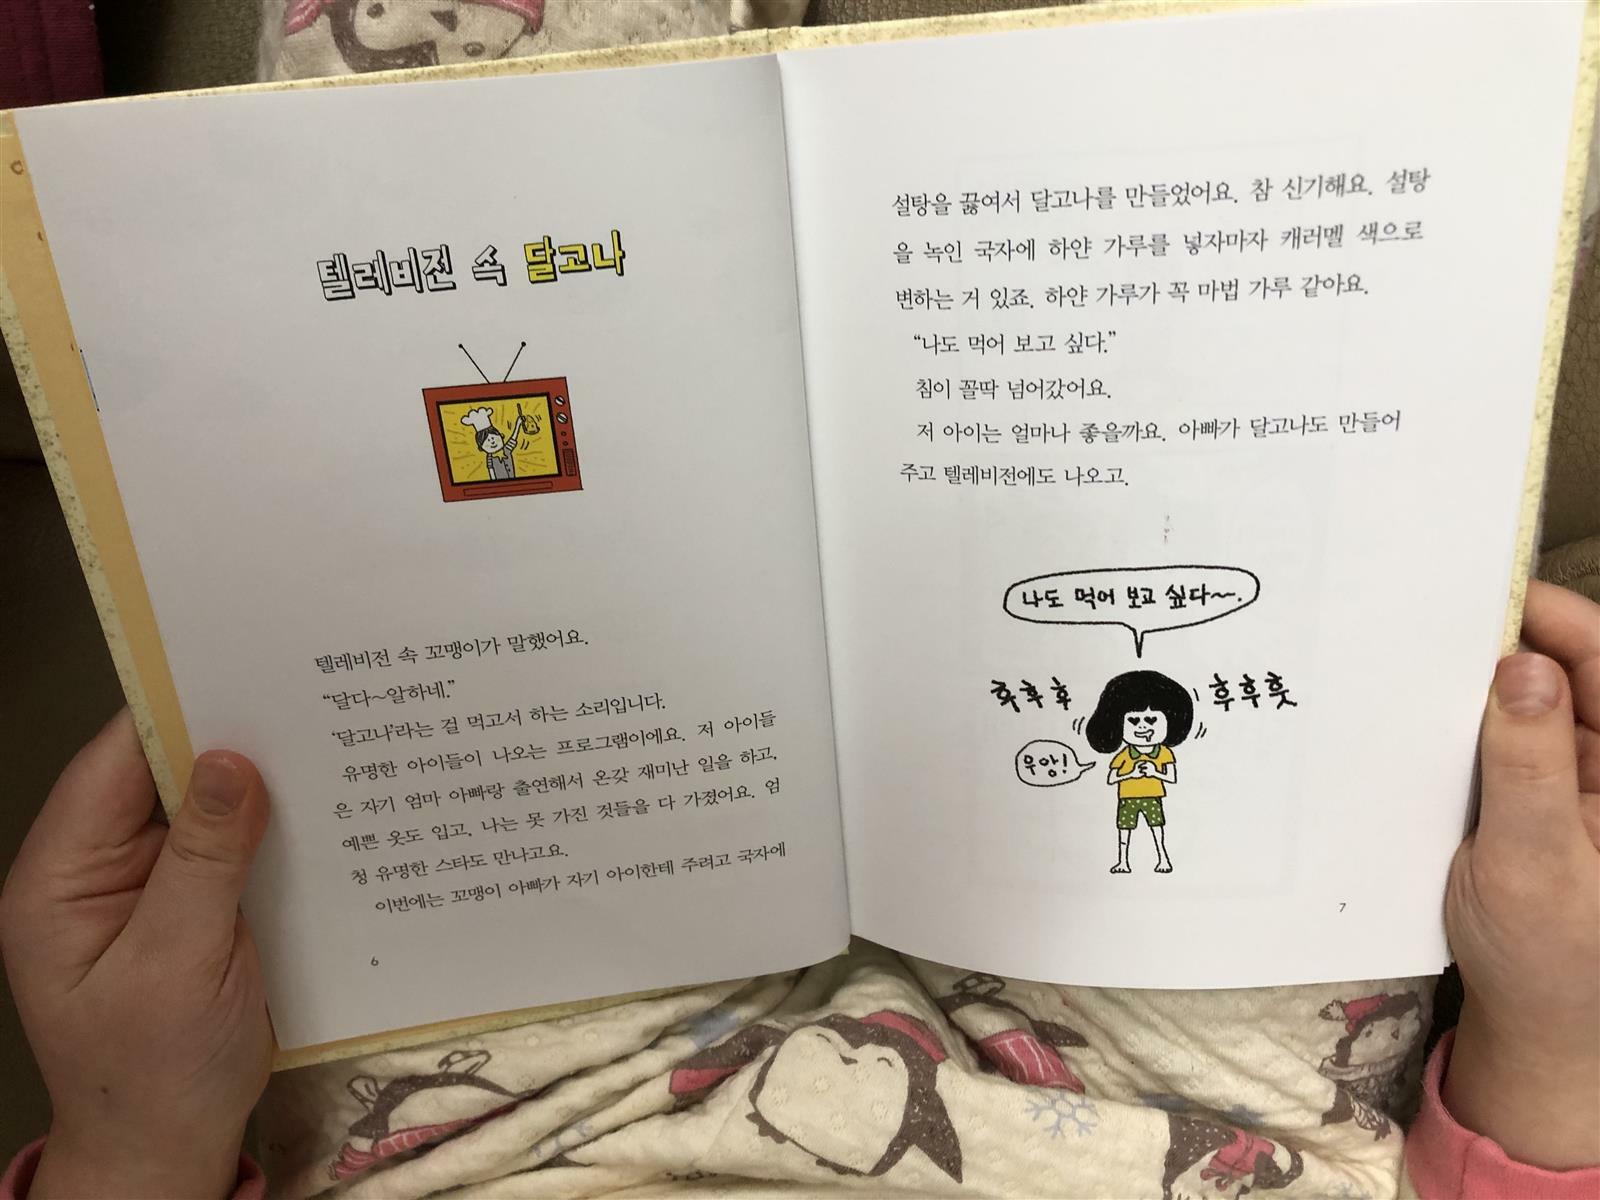 텔레비전 속 달고나
텔레비전 속 꼬맹이가 말했어요.
“달다~알하네.”
‘달고나’라는 걸 먹고서 하는 소리입니다.
유명한 아이들이 나오는 프로그램이에요. 저 아이들
은 자기 엄마 아빠랑 출연해서 온갖 재미난 일을 하고,
예쁜 옷도 입고, 나는 못 가진 것들을 다 가졌어요. 엄
청 유명한 스타도 만나고요.
이번에는 꼬맹이 아빠가 자기 아이한테 주려고 국자에
6
설탕을 끓여서 달고나를 만들었어요. 참 신기해요. 설탕
을 녹인 국자에 하얀 가루를 넣자마자 캐러멜 색으로
변하는 거 있죠. 하얀 가루가 꼭 마법 가루 같아요.
“나도 먹어 보고 싶다.”
침이 꼴딱 넘어갔어요.
저 아이는 얼마나 좋을까요. 아빠가 달고나도 만들어
주고 텔레비전에도 나오고.
나도 먹어 보고 싶다~.
후후후
후후훗
우앙!
7